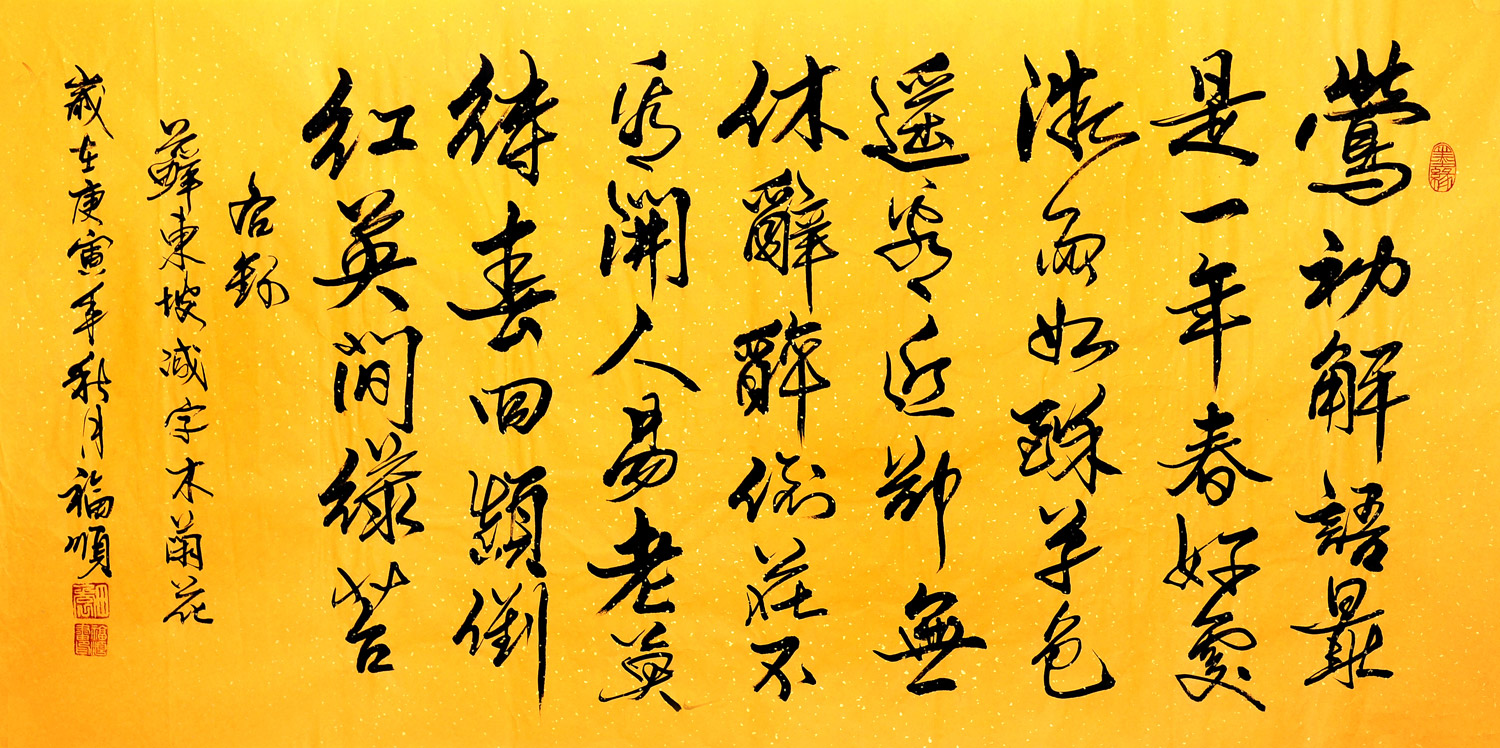 鶯初解語最
是一年春好處
微雨如酥草色
遥看近卻無
休辭醉倒花不
看開人易老莫
待春回顛倒
紅英間緑苔
右録
蘇東坡减字木蘭花
歲在庚寅年秋月福順